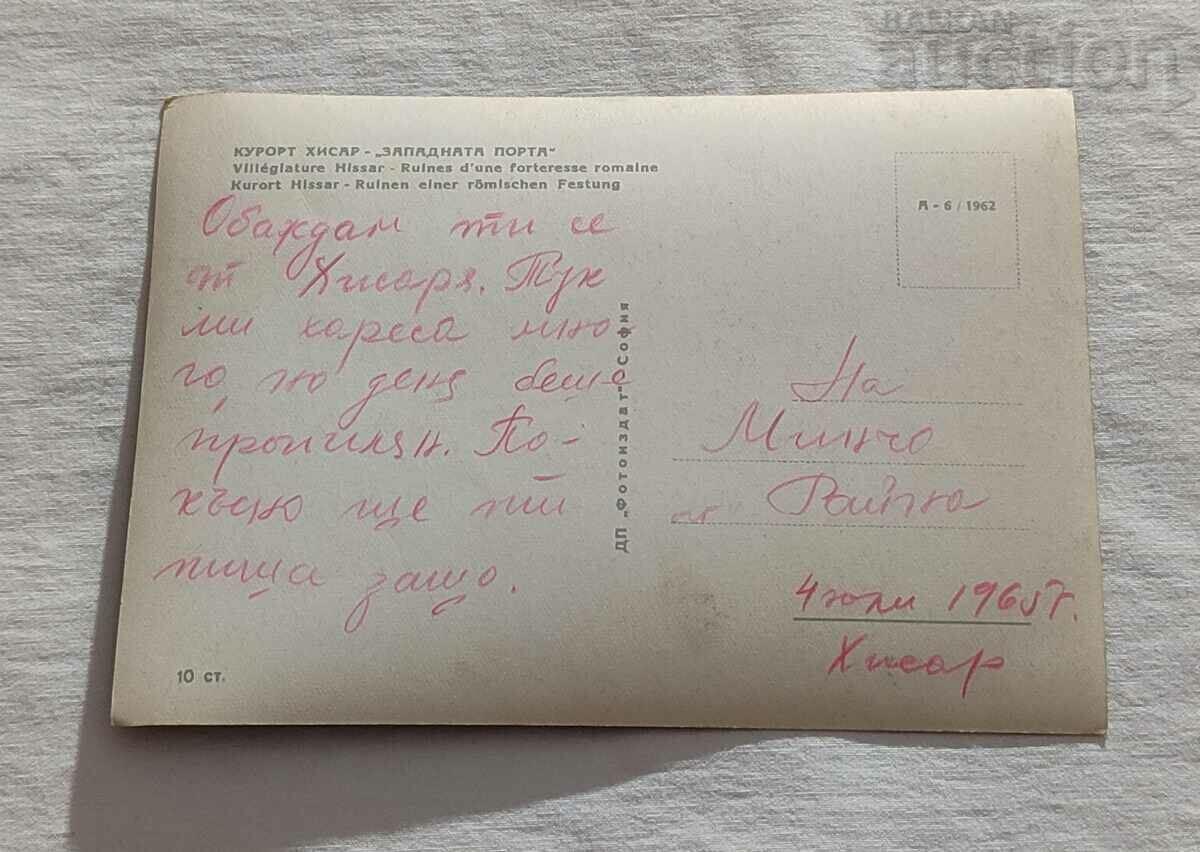 BALKAN
auction
КУРОРТ ХИСАР - „ЗАПАДНАТА ПОРТА"
Villégiature Hissar - Ruines d'une forteresse romaine
Kurort Hissar - Ruinen einer römischen Festung
А - 6 / 1962
Обаждам ти се
от Хисаря. Тук
ми хареса мно-
го, но деня беше
По-
късно ще ти
пиша защо.
ДП „Фотоиздат" София
На
Минчо
от Райна
4 юли 1965 г.
Хисар
10 ст.